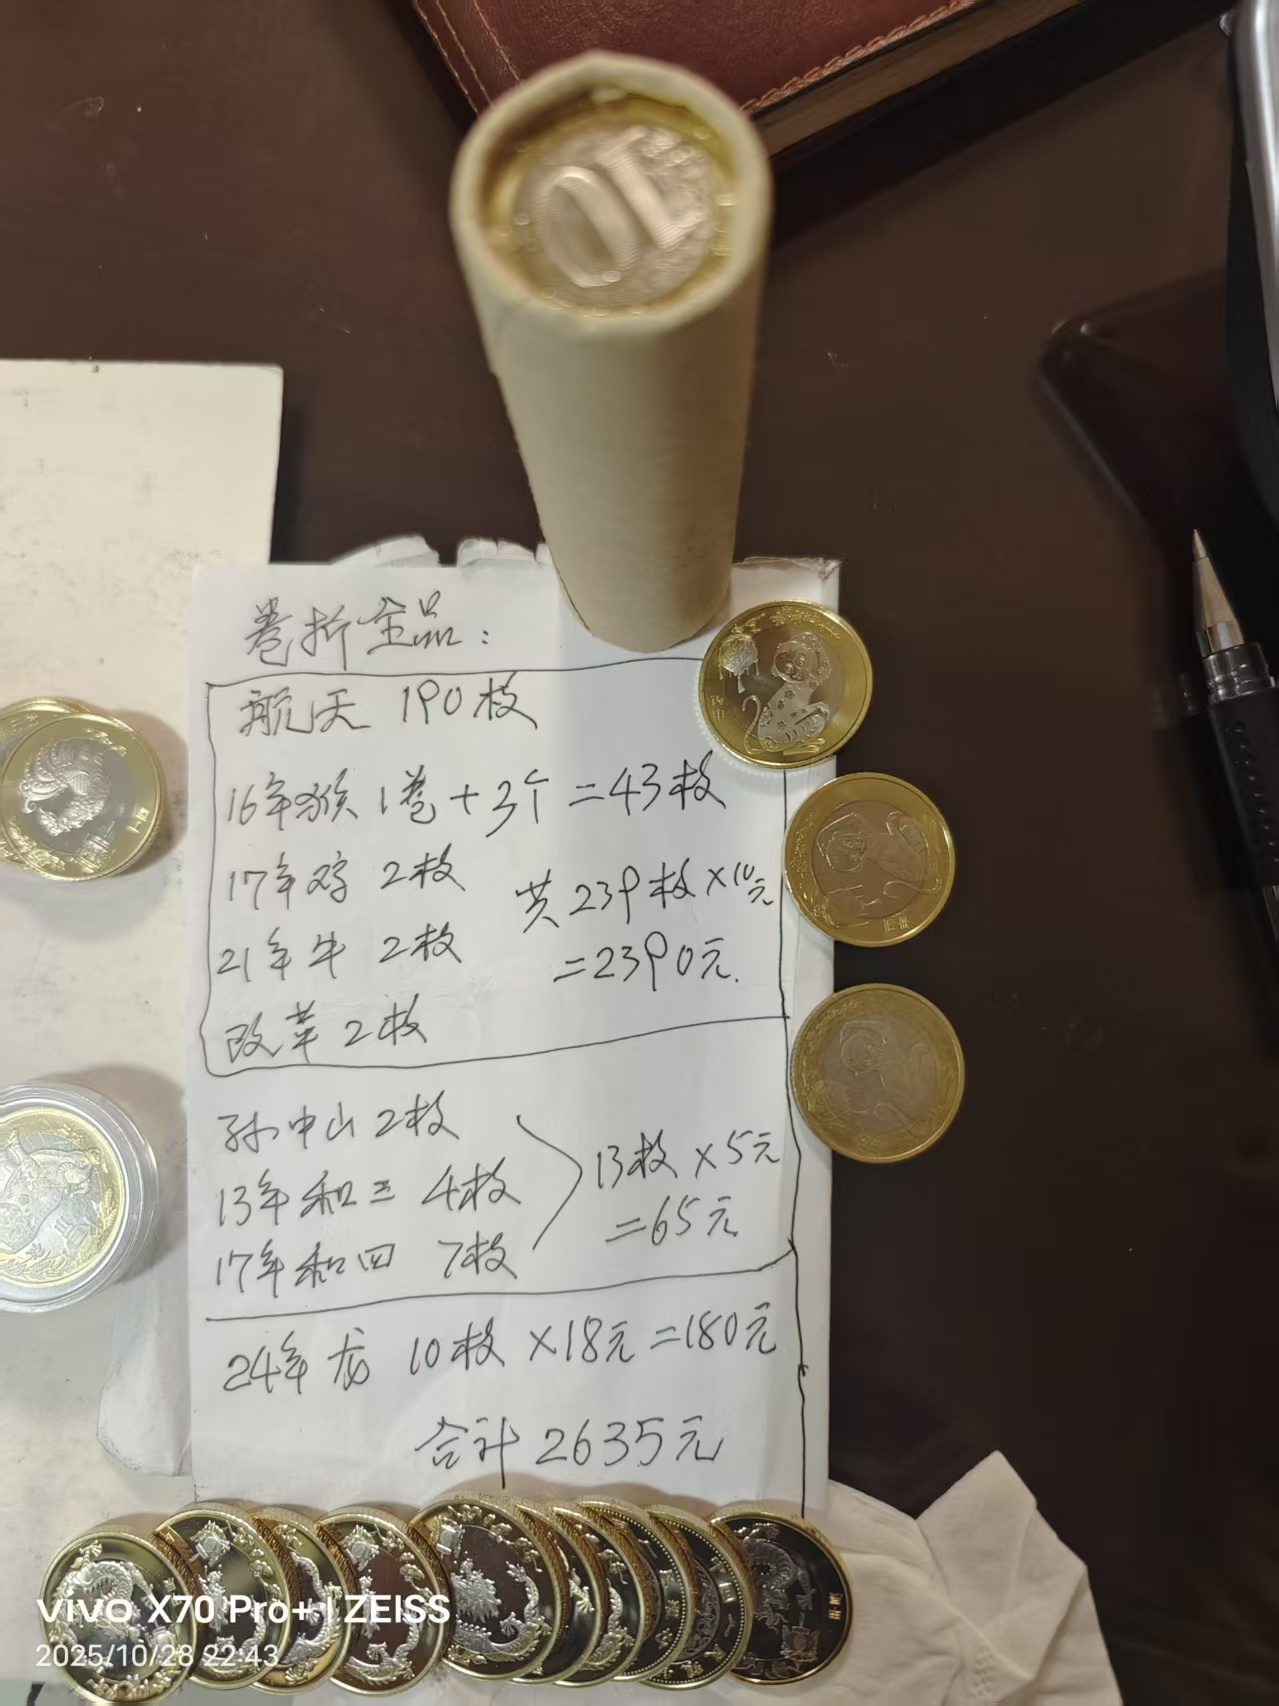 10
卷拆全品:
航天 190枚
16年猴 1卷+3个=43枚
17年鸡 2枚
共239枚×10元
21年牛 2枚
=2390元.
改革2枚
孙中山2枚
13年和三 4枚
17年和四 7枚
13枚×5元
=65元
24年龙 10枚×18元=180元
合计2635元
vivo X70 Pro+ | ZEISS
2025/10/28 22:43